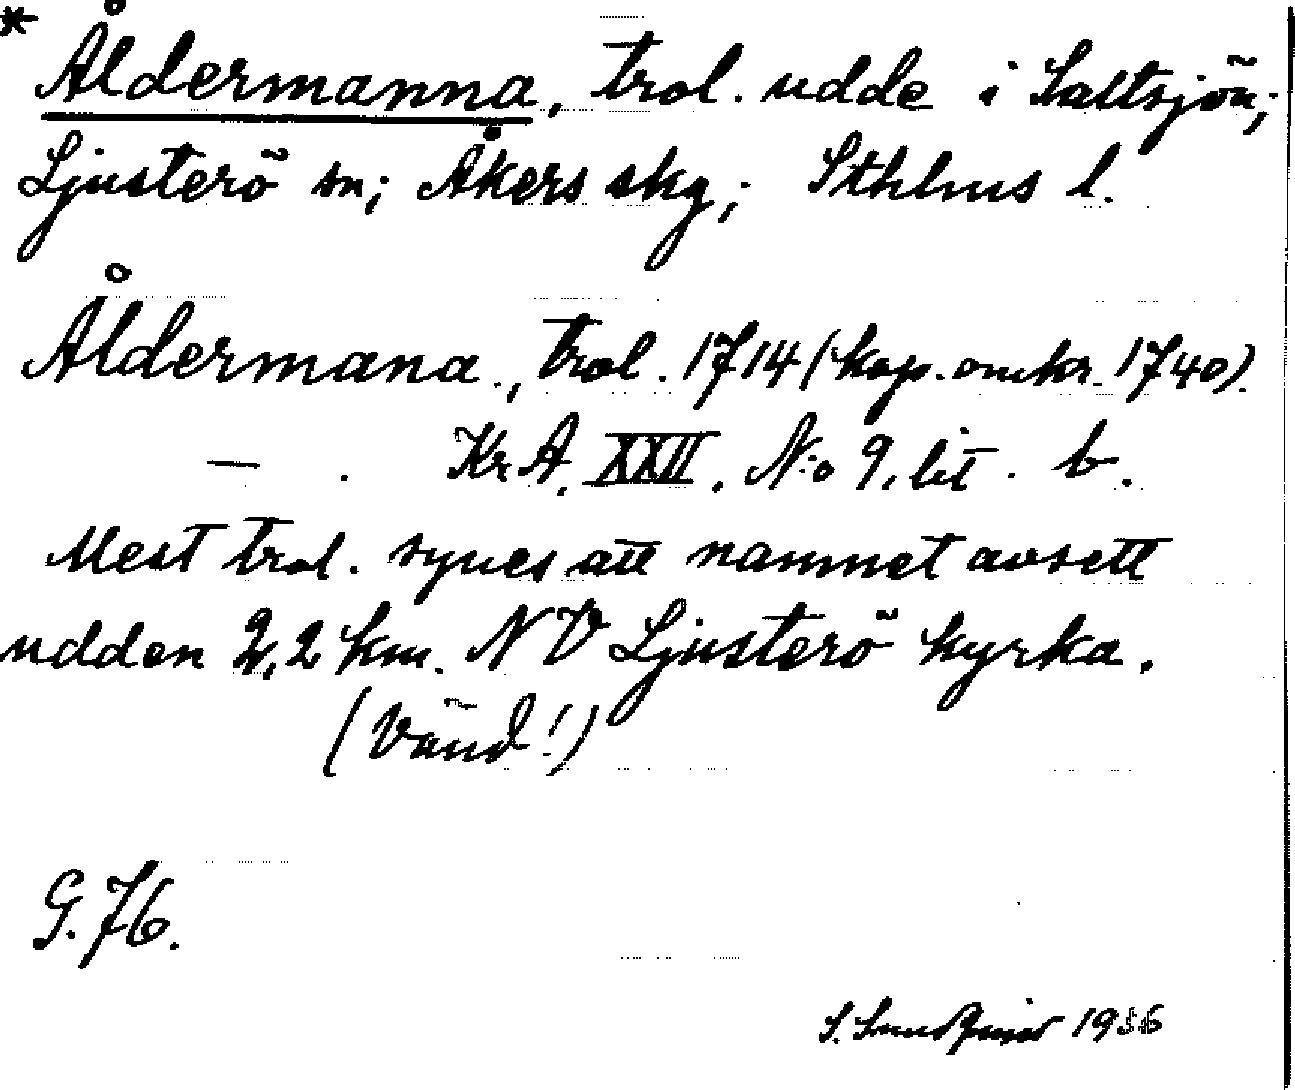 * Åldermanna, trol. udde i Saltsjön;
Ljusterö sn; Åkers skg; Sthlms l.
Åldermana, trol. 1714 (kop. omkr. 1740).
— . Kr A. XXII. N:o 9. lit. b.
Mest trol. synes att namnet avsett
udden 2,2 km. NV Ljusterö kyrka.
(Vänd!)
G. 76.
S. 19